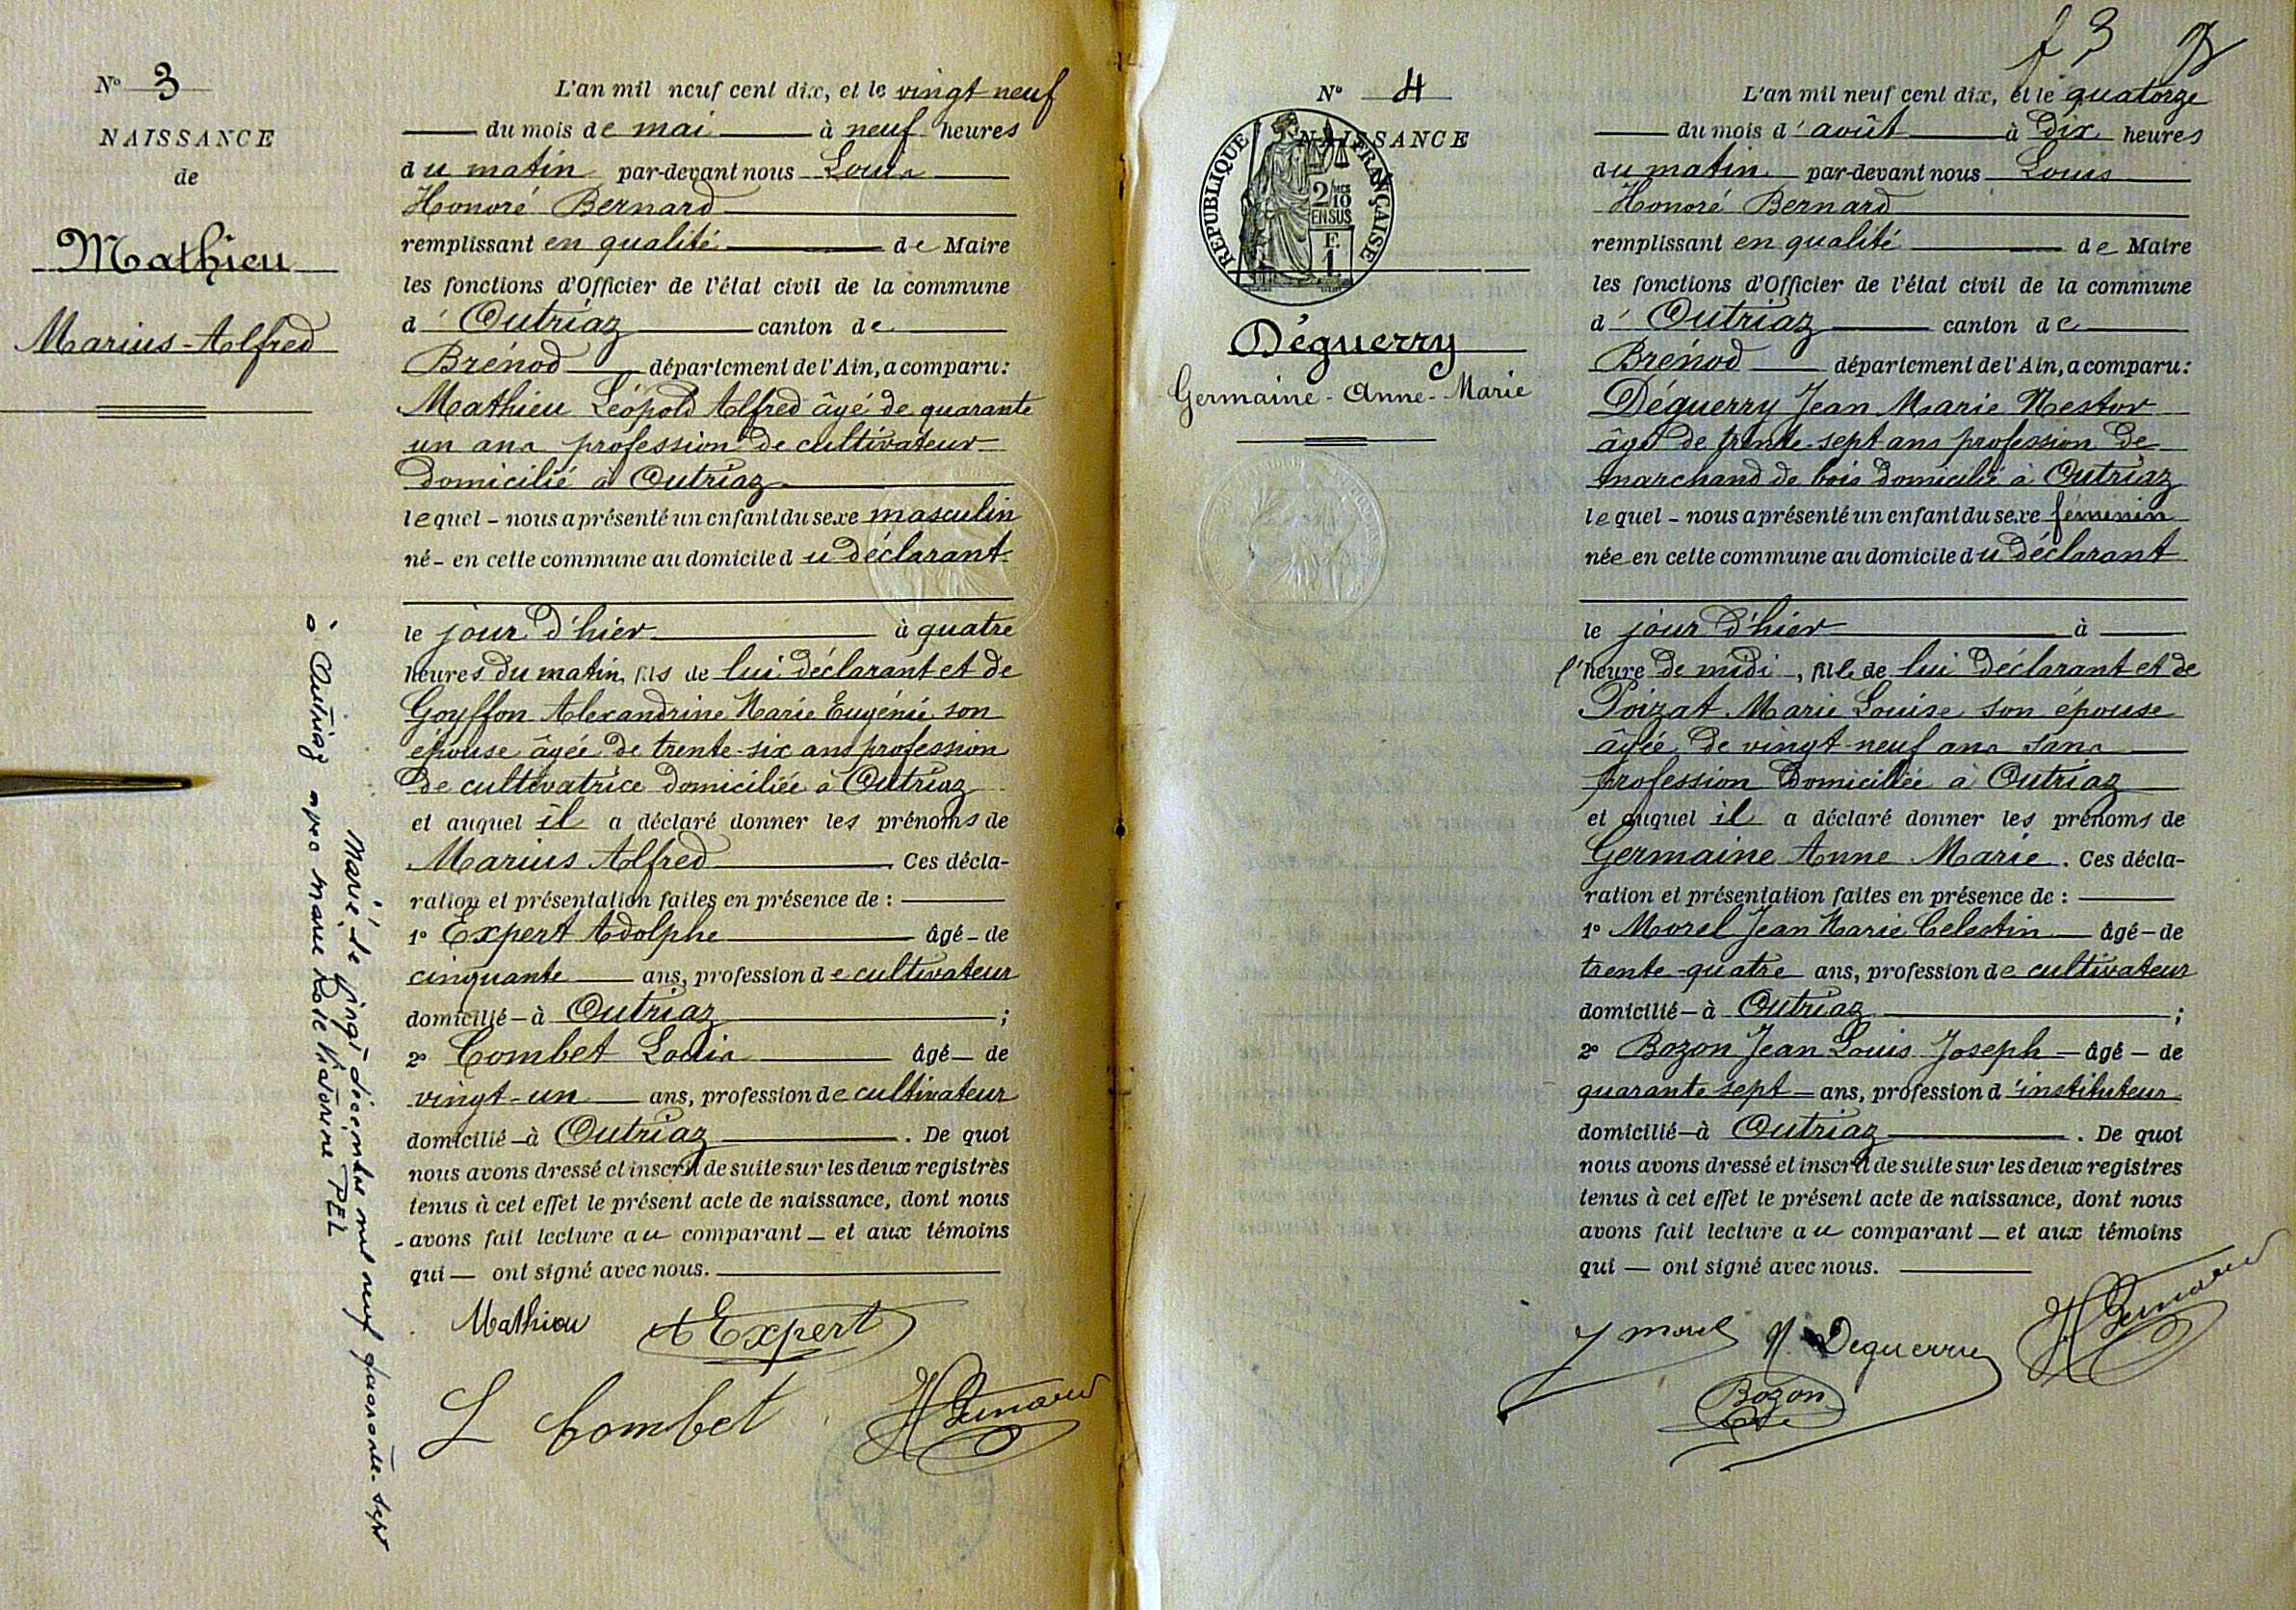 N° 3
NAISSANCE
de
Mathieu
Marius-Alfred
Marié le vingt décembre mil neuf quarante-sept
à Outriaz avec Marie Rose Victorine PEL
L'an mil neuf cent dix, et le vingt neuf
du mois de mai à neuf heures
du matin par-devant nous Louis
Honoré Bernard
remplissant en qualité de Maire
les fonctions d'Officier de l'état civil de la commune
d' Outriaz canton de
Brénod département de l'Ain, a comparu:
Mathieu Léopold Alfred âgé de quarante
un ans profession de cultivateur
domicilié à Outriaz
lequel - nous a présenté un enfant du sexe masculin
né - en cette commune au domicile du déclarant
le jour d'hier à quatre
heures du matin, fils de lui déclarant et de
Goyffon Alexandrine Marie Eugénie son
épouse âgée de trente-six ans profession
de cultivatrice domiciliée à Outriaz
et auquel il a déclaré donner les prénoms de
Marius Alfred. Ces décla-
ration et présentation faites en présence de :
1° Expert Adolphe âgé - de
cinquante ans, profession de cultivateur
domicilié - à Outriaz ;
2° Combet Louis âgé - de
vingt-un ans, profession de cultivateur
domicilié - à Outriaz. De quoi
nous avons dressé et inscrit de suite sur les deux registres
tenus à cet effet le présent acte de naissance, dont nous
avons fait lecture au comparant - et aux témoins
qui - ont signé avec nous.
Mathieu A Expert
L Combet H Bernard
f 3
N° 4
NAISSANCE
RÉPUBLIQUE FRANÇAISE
2/10
EN SUS
F.
1
Déguerry
Germaine-Anne-Marie
L'an mil neuf cent dix, et le quatorze
du mois d'août à dix heures
du matin par-devant nous Louis
Honoré Bernard
remplissant en qualité de Maire
les fonctions d'Officier de l'état civil de la commune
d' Outriaz canton de
Brénod département de l'Ain, a comparu:
Déguerry Jean Marie Nestor
âgé de trente-sept ans profession de
marchand de bois domicilié à Outriaz
lequel - nous a présenté un enfant du sexe féminin
née en cette commune au domicile du déclarant
le jour d'hier à
l'heure de midi, fille de lui déclarant et de
Poizat Marie Louise son épouse
âgée de vingt-neuf ans sans
profession domiciliée à Outriaz
et auquel il a déclaré donner les prénoms de
Germaine Anne Marie. Ces décla-
ration et présentation faites en présence de :
1° Morel Jean Marie Celestin âgé - de
trente-quatre ans, profession de cultivateur
domicilié - à Outriaz ;
2° Bozon Jean Louis Joseph - âgé - de
quarante sept - ans, profession d'instituteur
domicilié - à Outriaz. De quoi
nous avons dressé et inscrit de suite sur les deux registres
tenus à cet effet le présent acte de naissance, dont nous
avons fait lecture au comparant - et aux témoins
qui - ont signé avec nous.
J morel N. Deguerry H Bernard
Bozon